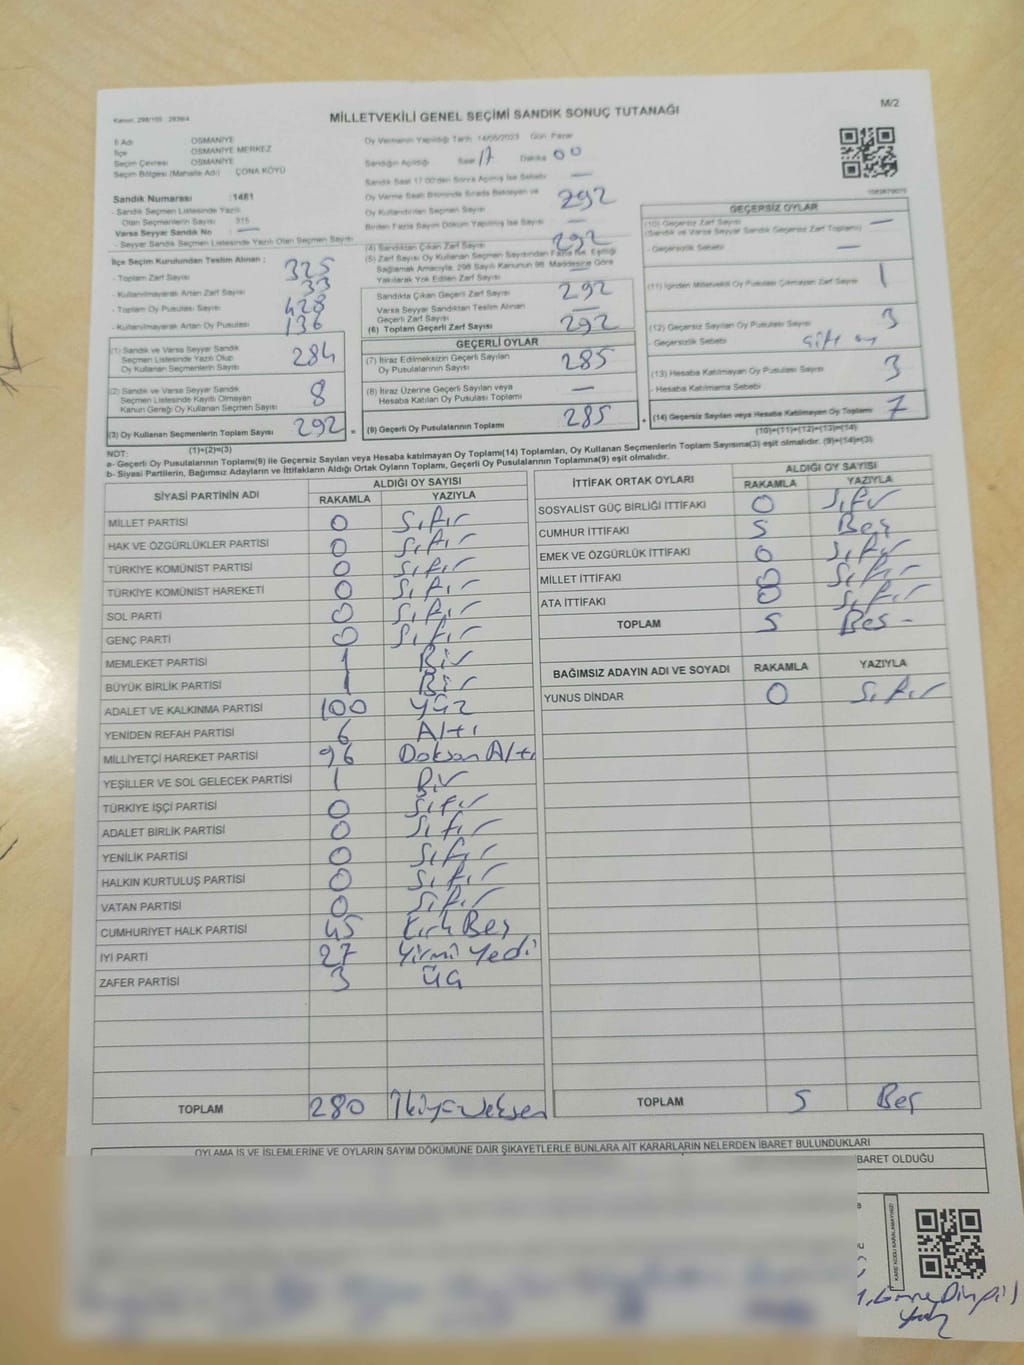 M/2
MİLLETVEKİLİ GENEL SEÇİMİ SANDIK SONUÇ TUTANAĞI
İl Adı OSMANİYE
İlçe OSMANİYE MERKEZ
Seçim Çevresi OSMANİYE
Seçim Bölgesi (Mahalle Adı) ÇONA KÖYÜ
Sandık Numarası :1481
- Sandık Seçmen Listesinde Yazılı
Olan Seçmenlerin Sayısı :315
Varsa Seyyar Sandık No : —
- Seyyar Sandık Seçmen Listesinde Yazılı Olan Seçmen Sayısı
İlçe Seçim Kurulundan Teslim Alınan ;
- Toplam Zarf Sayısı 325
- Kullanılmayarak Artan Zarf Sayısı 33
- Toplam Oy Pusulası Sayısı 428
- Kullanılmayarak Artan Oy Pusulası 136
(1) Sandık ve Varsa Seyyar Sandık
Seçmen Listesinde Yazılı Olup
Oy Kullanan Seçmenlerin Sayısı 284
(2) Sandık ve Varsa Seyyar Sandık
Seçmen Listesinde Kayıtlı Olmayan
Kanun Gereği Oy Kullanan Seçmen Sayısı 8
(3) Oy Kullanan Seçmenlerin Toplam Sayısı 292
(1)+(2)=(3)
Oy Vermenin Yapıldığı Tarih 14/05/2023 Gün Pazar
Sandığın Açıldığı Saat 17 Dakika 00
Sandık Saat 17:00'den Sonra Açılmış İse Sebebi —
Oy Verme Saati Bitiminde Sırada Bekleyen ve
Oy Kullandırılan Seçmen Sayısı 292
Birden Fazla Sayım Döküm Yapılmış İse Sayısı —
(4) Sandıktan Çıkan Zarf Sayısı 292
(5) Zarf Sayısı Oy Kullanan Seçmen Sayısından Fazla İse, Eşitliği
Sağlamak Amacıyla, 298 Sayılı Kanunun 98. Maddesine Göre
Yakılarak Yok Edilen Zarf Sayısı —
Sandıkta Çıkan Geçerli Zarf Sayısı 292
Varsa Seyyar Sandıktan Teslim Alınan
Geçerli Zarf Sayısı —
(6) Toplam Geçerli Zarf Sayısı 292
GEÇERLİ OYLAR
(7) İtiraz Edilmeksizin Geçerli Sayılan
Oy Pusulalarının Sayısı 285
(8) İtiraz Üzerine Geçerli Sayılan veya
Hesaba Katılan Oy Pusulası Toplamı —
(9) Geçerli Oy Pusulalarının Toplamı 285
GEÇERSİZ OYLAR
(10) Geçersiz Zarf Sayısı —
(Sandık ve Varsa Seyyar Sandık Geçersiz Zarf Toplamı)
- Geçersizlik Sebebi —
(11) İçinden Milletvekili Oy Pusulası Çıkmayan Zarf Sayısı 1
(12) Geçersiz Sayılan Oy Pusulası Sayısı 3
- Geçersizlik Sebebi Çift oy
(13) Hesaba Katılmayan Oy Pusulası Sayısı 3
- Hesaba Katılmama Sebebi
(14) Geçersiz Sayılan veya Hesaba Katılmayan Oy Toplamı 7
(10)+(11)+(12)+(13)=(14)
NOT:
a- Geçerli Oy Pusulalarının Toplamı(9) ile Geçersiz Sayılan veya Hesaba katılmayan Oy Toplamı(14) Toplamları, Oy Kullanan Seçmenlerin Toplam Sayısına(3) eşit olmalıdır. (9)+(14)=(3)
b- Siyasi Partilerin, Bağımsız Adayların ve İttifakların Aldığı Ortak Oyların Toplamı, Geçerli Oy Pusulalarının Toplamına(9) eşit olmalıdır.
SİYASİ PARTİNİN ADI ALDIĞI OY SAYISI
RAKAMLA YAZIYLA
MİLLET PARTİSİ 0 Sıfır
HAK VE ÖZGÜRLÜKLER PARTİSİ 0 Sıfır
TÜRKİYE KOMÜNİST PARTİSİ 0 Sıfır
TÜRKİYE KOMÜNİST HAREKETİ 0 Sıfır
SOL PARTİ 0 Sıfır
GENÇ PARTİ 0 Sıfır
MEMLEKET PARTİSİ 1 Bir
BÜYÜK BİRLİK PARTİSİ 1 Bir
ADALET VE KALKINMA PARTİSİ 100 Yüz
YENİDEN REFAH PARTİSİ 6 Altı
MİLLİYETÇİ HAREKET PARTİSİ 96 Doksan Altı
YEŞİLLER VE SOL GELECEK PARTİSİ 1 Bir
TÜRKİYE İŞÇİ PARTİSİ 0 Sıfır
ADALET BİRLİK PARTİSİ 0 Sıfır
YENİLİK PARTİSİ 0 Sıfır
HALKIN KURTULUŞ PARTİSİ 0 Sıfır
VATAN PARTİSİ 0 Sıfır
CUMHURİYET HALK PARTİSİ 45 Kırk Beş
İYİ PARTİ 27 Yirmi Yedi
ZAFER PARTİSİ 3 üç
TOPLAM 280 İkiyüzseksen
İTTİFAK ORTAK OYLARI ALDIĞI OY SAYISI
RAKAMLA YAZIYLA
SOSYALİST GÜÇ BİRLİĞİ İTTİFAKI 0 Sıfır
CUMHUR İTTİFAKI 5 Beş
EMEK VE ÖZGÜRLÜK İTTİFAKI 0 Sıfır
MİLLET İTTİFAKI 0 Sıfır
ATA İTTİFAKI 0 Sıfır
TOPLAM 5 Beş -
BAĞIMSIZ ADAYIN ADI VE SOYADI RAKAMLA YAZIYLA
YUNUS DİNDAR 0 Sıfır
TOPLAM 5 Beş
OYLAMA İŞ VE İŞLEMLERİNE VE OYLARIN SAYIM DÖKÜMÜNE DAİR ŞİKAYETLERLE BUNLARA AİT KARARLARIN NELERDEN İBARET BULUNDUKLARI
BARET OLDUĞU